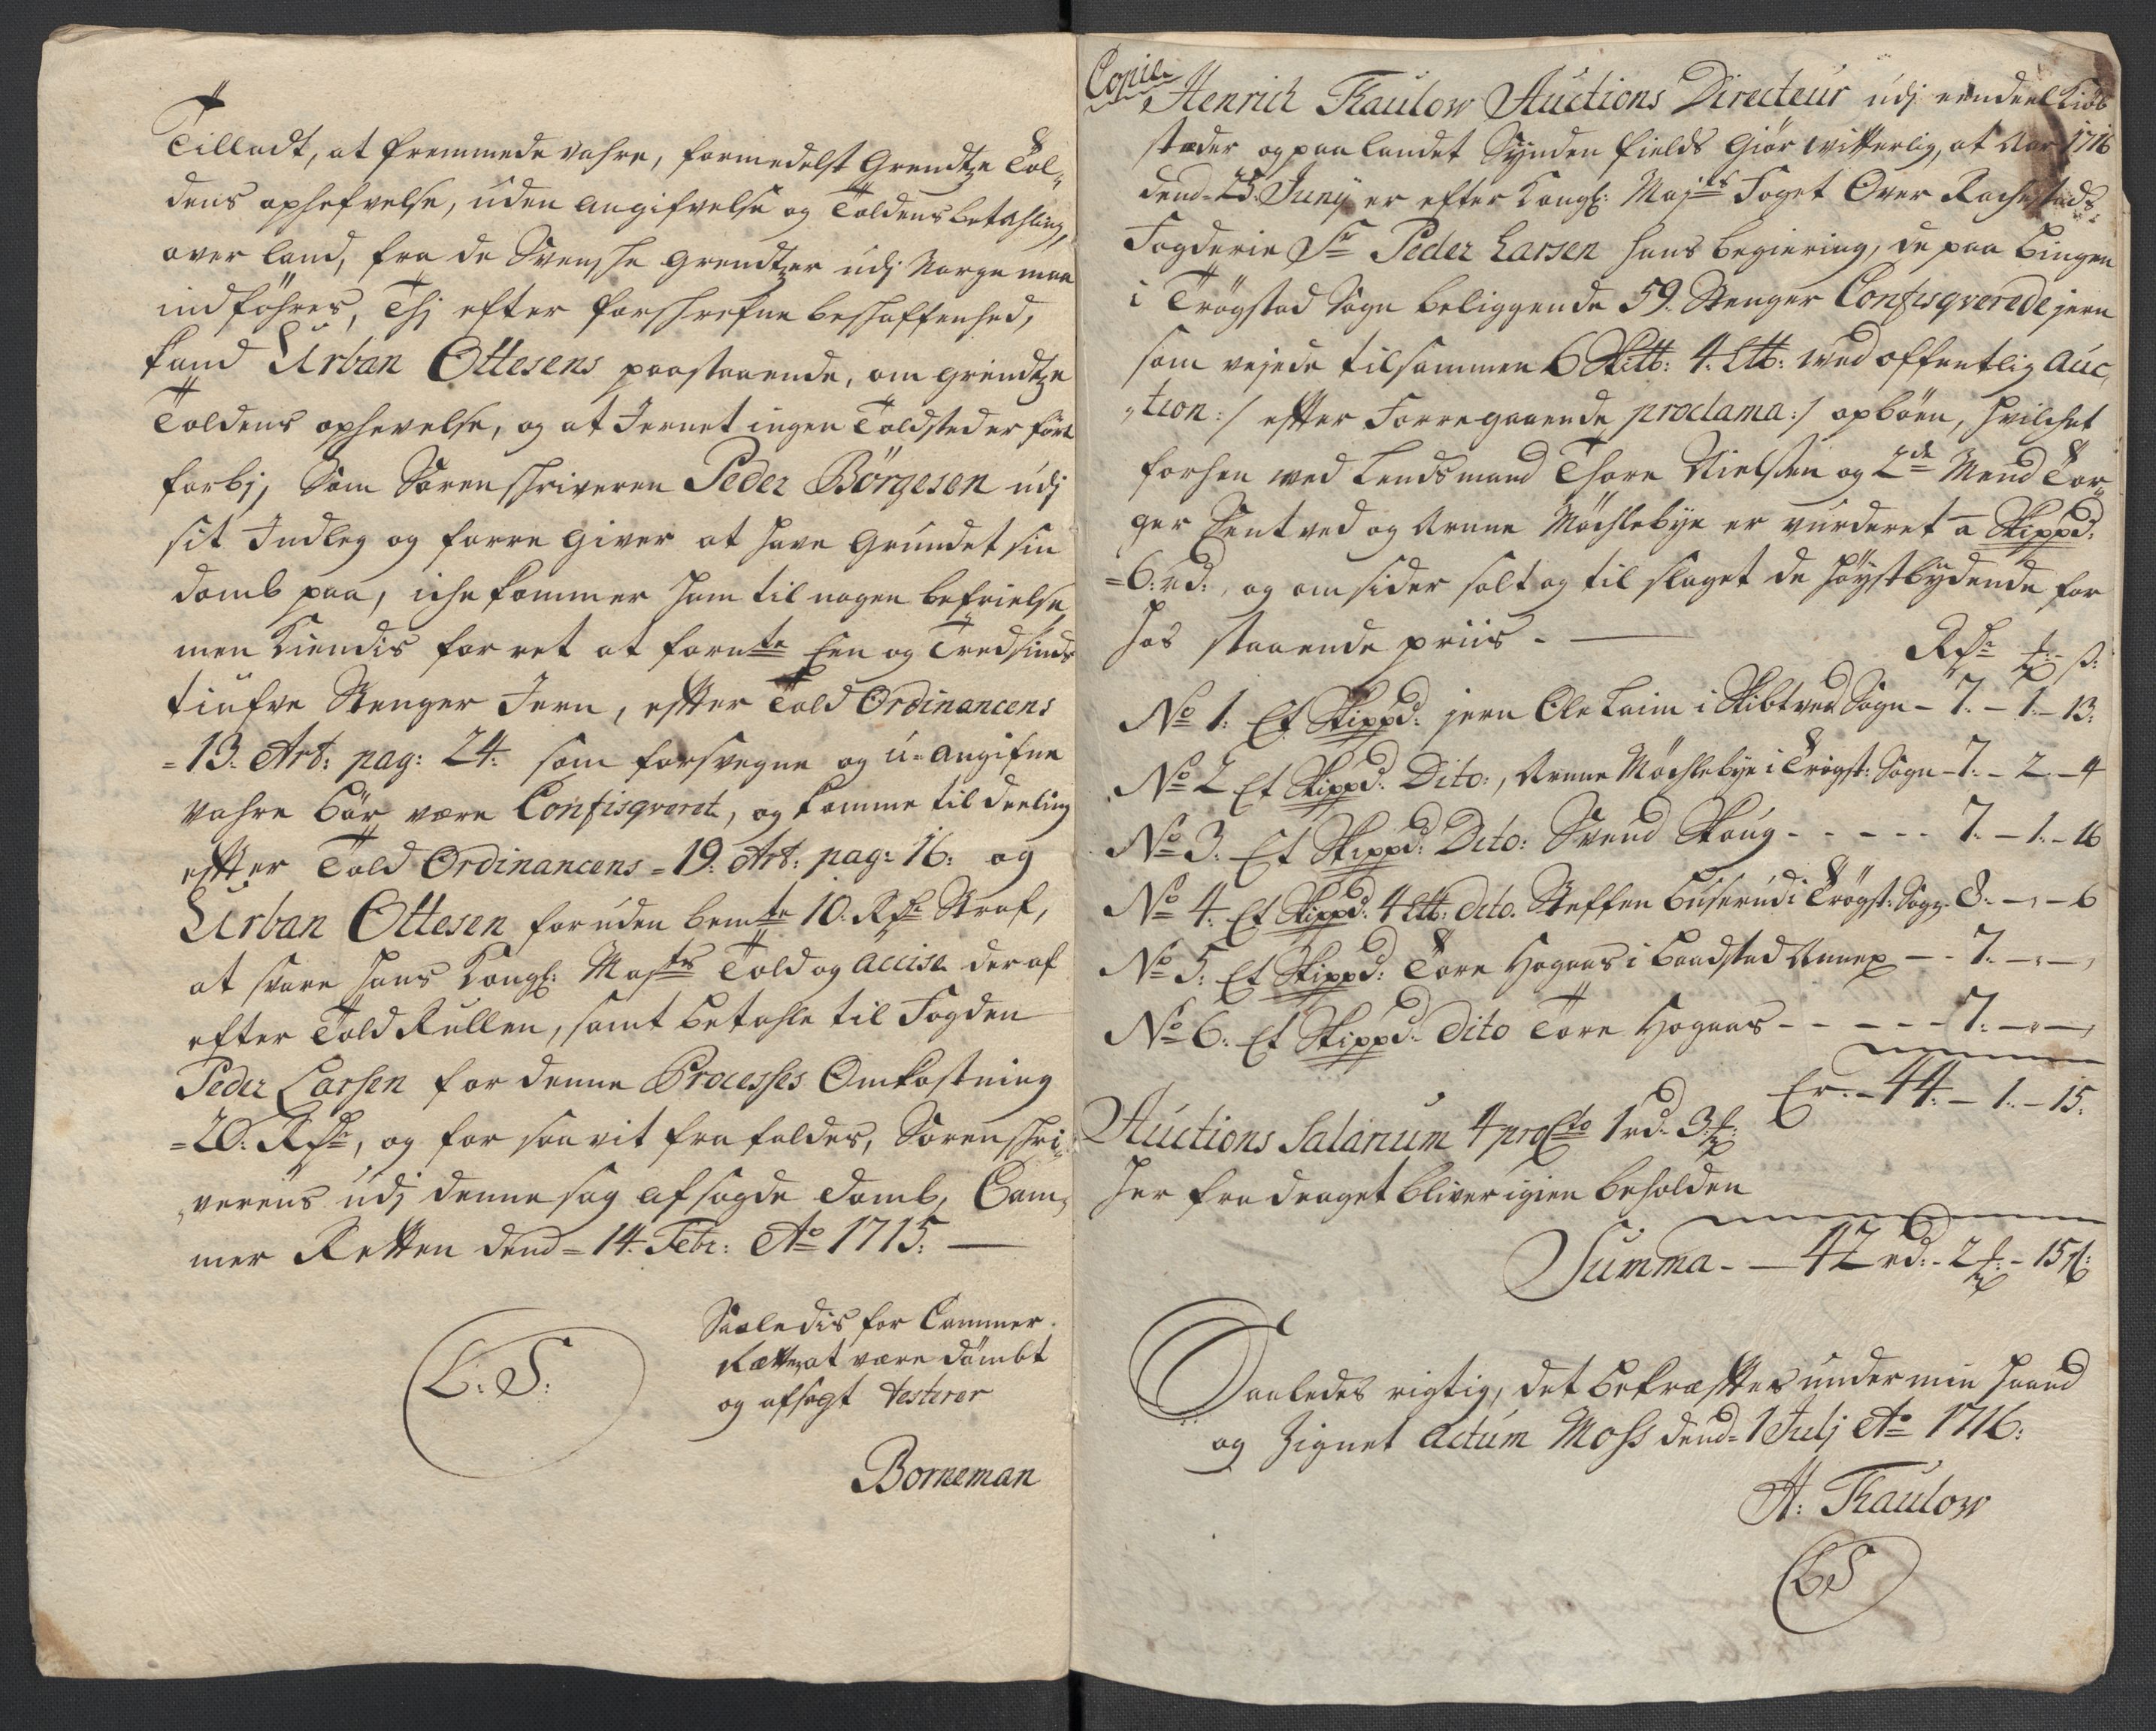 Tilladt, at fremmede vahre, formedelst Grendtze Tol„
dens ophefvelse, uden angifvelse og Toldens betahling,
over land, fra de Svenshe grendtzer udj Norge maa
indføhres, Thj efter forschrefne beshaffenhed,
kand Urban Ottesens paastaaende, om grendtze
Toldens ophevelse, og at Jernet ingen Toldsted er ført
forbj, Som Sorenschriveren Peder Börgesen udj
sit Indleg og forre giver at have Grundet sin
domb paa, iche kommer ham til nogen befrielse,
men Kiendis for ret at fornte Een og Tredsinds
tiufve Stenger Jern, efter Told Ordinancens
=13. Art: pag: 24. som forsvegne og u-angifne
vahre bör være Confisqveret, og komme til deeling
efter Told Ordinancens =19. Art: pag: 16: og
Urban Ottesen foruden bemte 10. Rdr Straf,
at svare Hans Kongl: Majts Told og Accise der af
efter Told Rullen, samt betahle til Fogden
Peder Larsen for denne Processes Omkostning
=20. Rdr, og for saavit fra falder, Sorenschri„
„verens udj denne sag afsagde domb, Cam„
mer Retten dend =14. Febr: Ao 1715.
Saaledis for Cammer
Retten at være dömbt
og afsagt testerer
L: S:
Borneman
Copie
Henrich Thaulow Auctions Directeur udj eendeel Kiöb
stæder og paa landet Synden fields Giör witterlig, at Aar 1716
dend 25 Juny er efter Kongl: Majts Foget Over Rachestads
Fogderie Sr Peder Larsen hans begiering, de paa Bingen
i Trögstad Sogn beliggende 59. Stenger Confisqverede jern
som vejede tilsammen 6 Sk℔: 4. L℔: ved offentlig Auc„
„tion :/ efter Forregaaende proclama :/ opböen, hvilchet
forhen ved Lendsmand Thore Nielsen og 2de Mend Tor„
ger Sentved og Arnne Möchlebye er vurderet a Skippd:
=6: rd:, og omsider solt og til slaget de höystbydende for
hos staaende priis.
Rdr ort ß:
No 1: Et Skippd: jern Ole Laim i Skibtved Sogn - 7. - 1. - 13.
No 2 Et Skippd: Dito:, Arnne Möchlebye i Trögst: Sogn - 7. - 2. - 4
No 3: Et Skippd: Dito: Svend Skoug - - - - - 7. - 1. - 16
No 4: Et Skippd: 4 L℔: dito. Steffen Buserud i Trögst: Sogn 8. - „ - 6
No 5: Et Skippd: Tore Hogaas i Baadstad Annex - - 7. - „ - „
No 6: Et Skippd: Dito Tore Hogaas - - - - - 7. - „ - „
Er - 44. - 1. - 15.
Auctions Salarium 4 pro Cto 1 rd: 3 ort
her fra draget bliver igien beholden
Summa - - 42 rd: - 2 ort - 15 ß:
Saaledes rigtig, det bekræfter under min haand
og Zignet Actum Moss dend 1 Julj Ao 1716:
H: Thaulow
LS